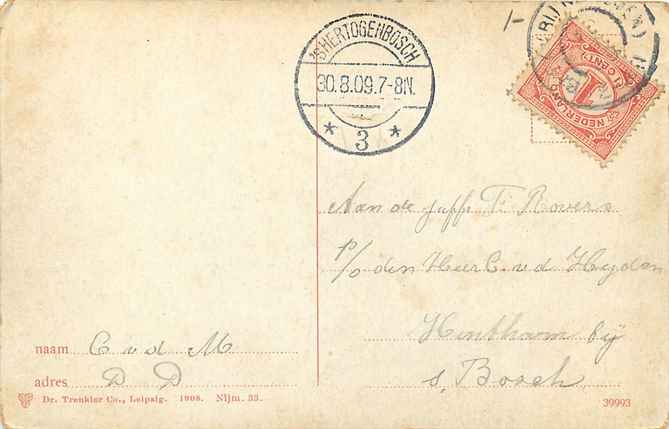 'SHERTOGENBOSCH
30.8.09.7-8N.
* 3 *
NEDERLAND
1
CENT
Aan de Juffr F. Rovers
p/o den Heer C. v d Heyden
Hintham bij
s. Bosch
naam C v d M
adres D D
Dr. Trenkler Co., Leipzig. 1908. Nijm. 33.
39993